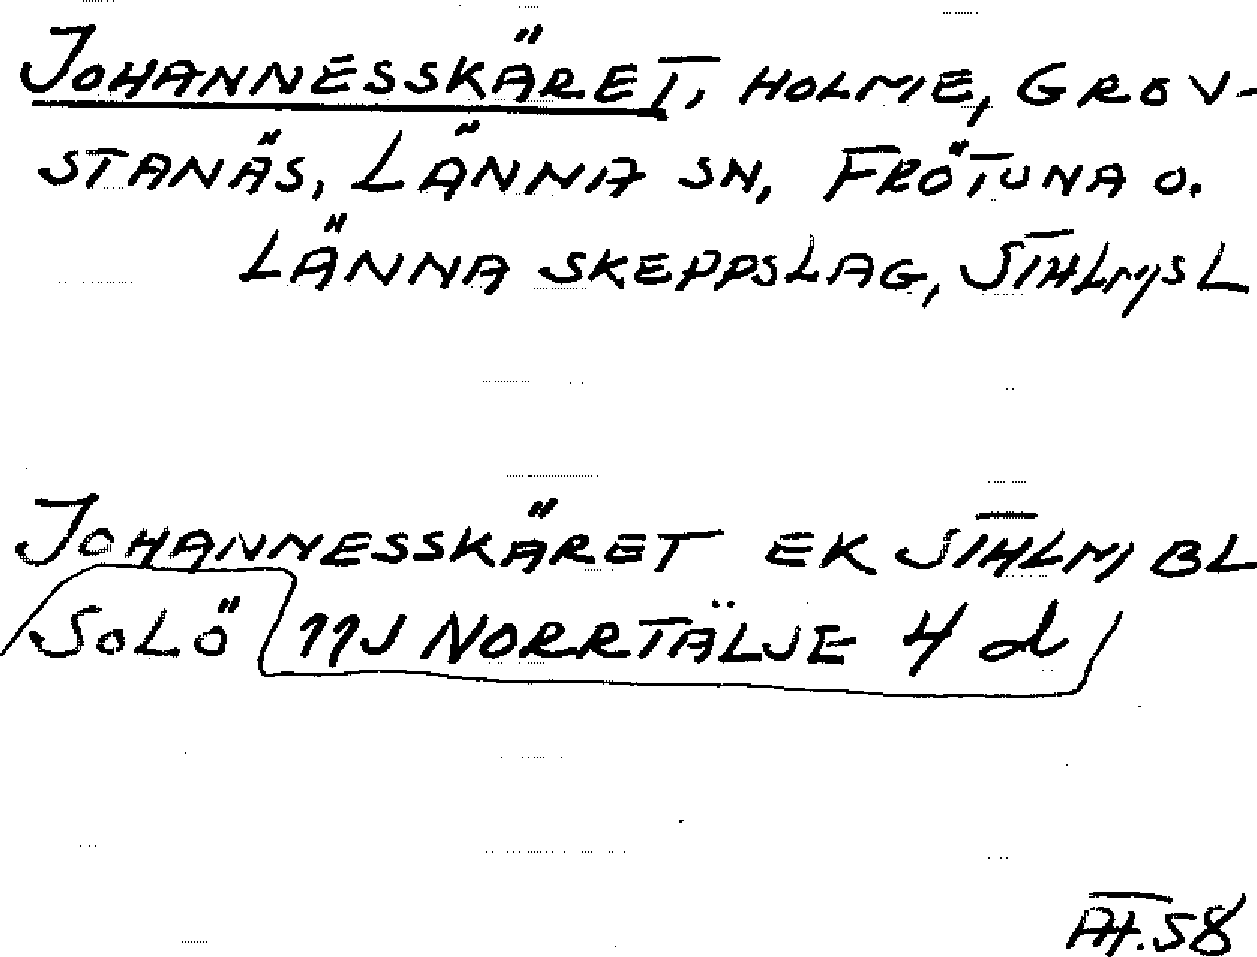 JOHANNESSKÄRET, HOLME, GROV-
STANÄS, LÄNNA SN, FRÖTUNA O.
LÄNNA SKEPPSLAG, STHLMS L
JOHANNESSKÄRET EK STHLM BL
SOLÖ 11J NORRTÄLJE 4 d
58